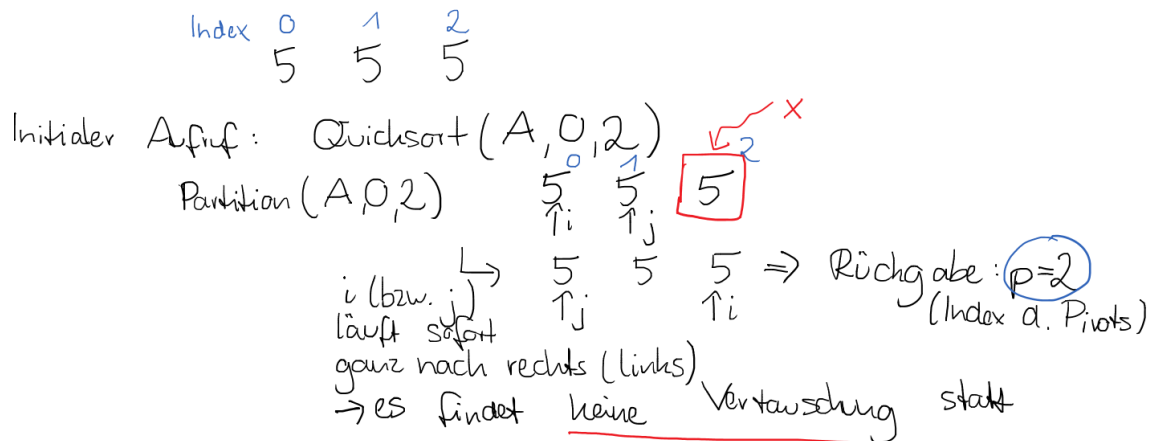 Index 0 1 2
5 5 5
Initialer Aufruf: Quicksort(A,0,2) x
0 1 2
Partition(A,0,2) 5 5 5
↑i ↑j
↳ 5 5 5 ⇒ Rückgabe: p=2
i (bzw. j) ↑j ↑i (Index d. Pivots)
läuft sofort
ganz nach rechts (links)
→ es findet keine Vertauschung statt